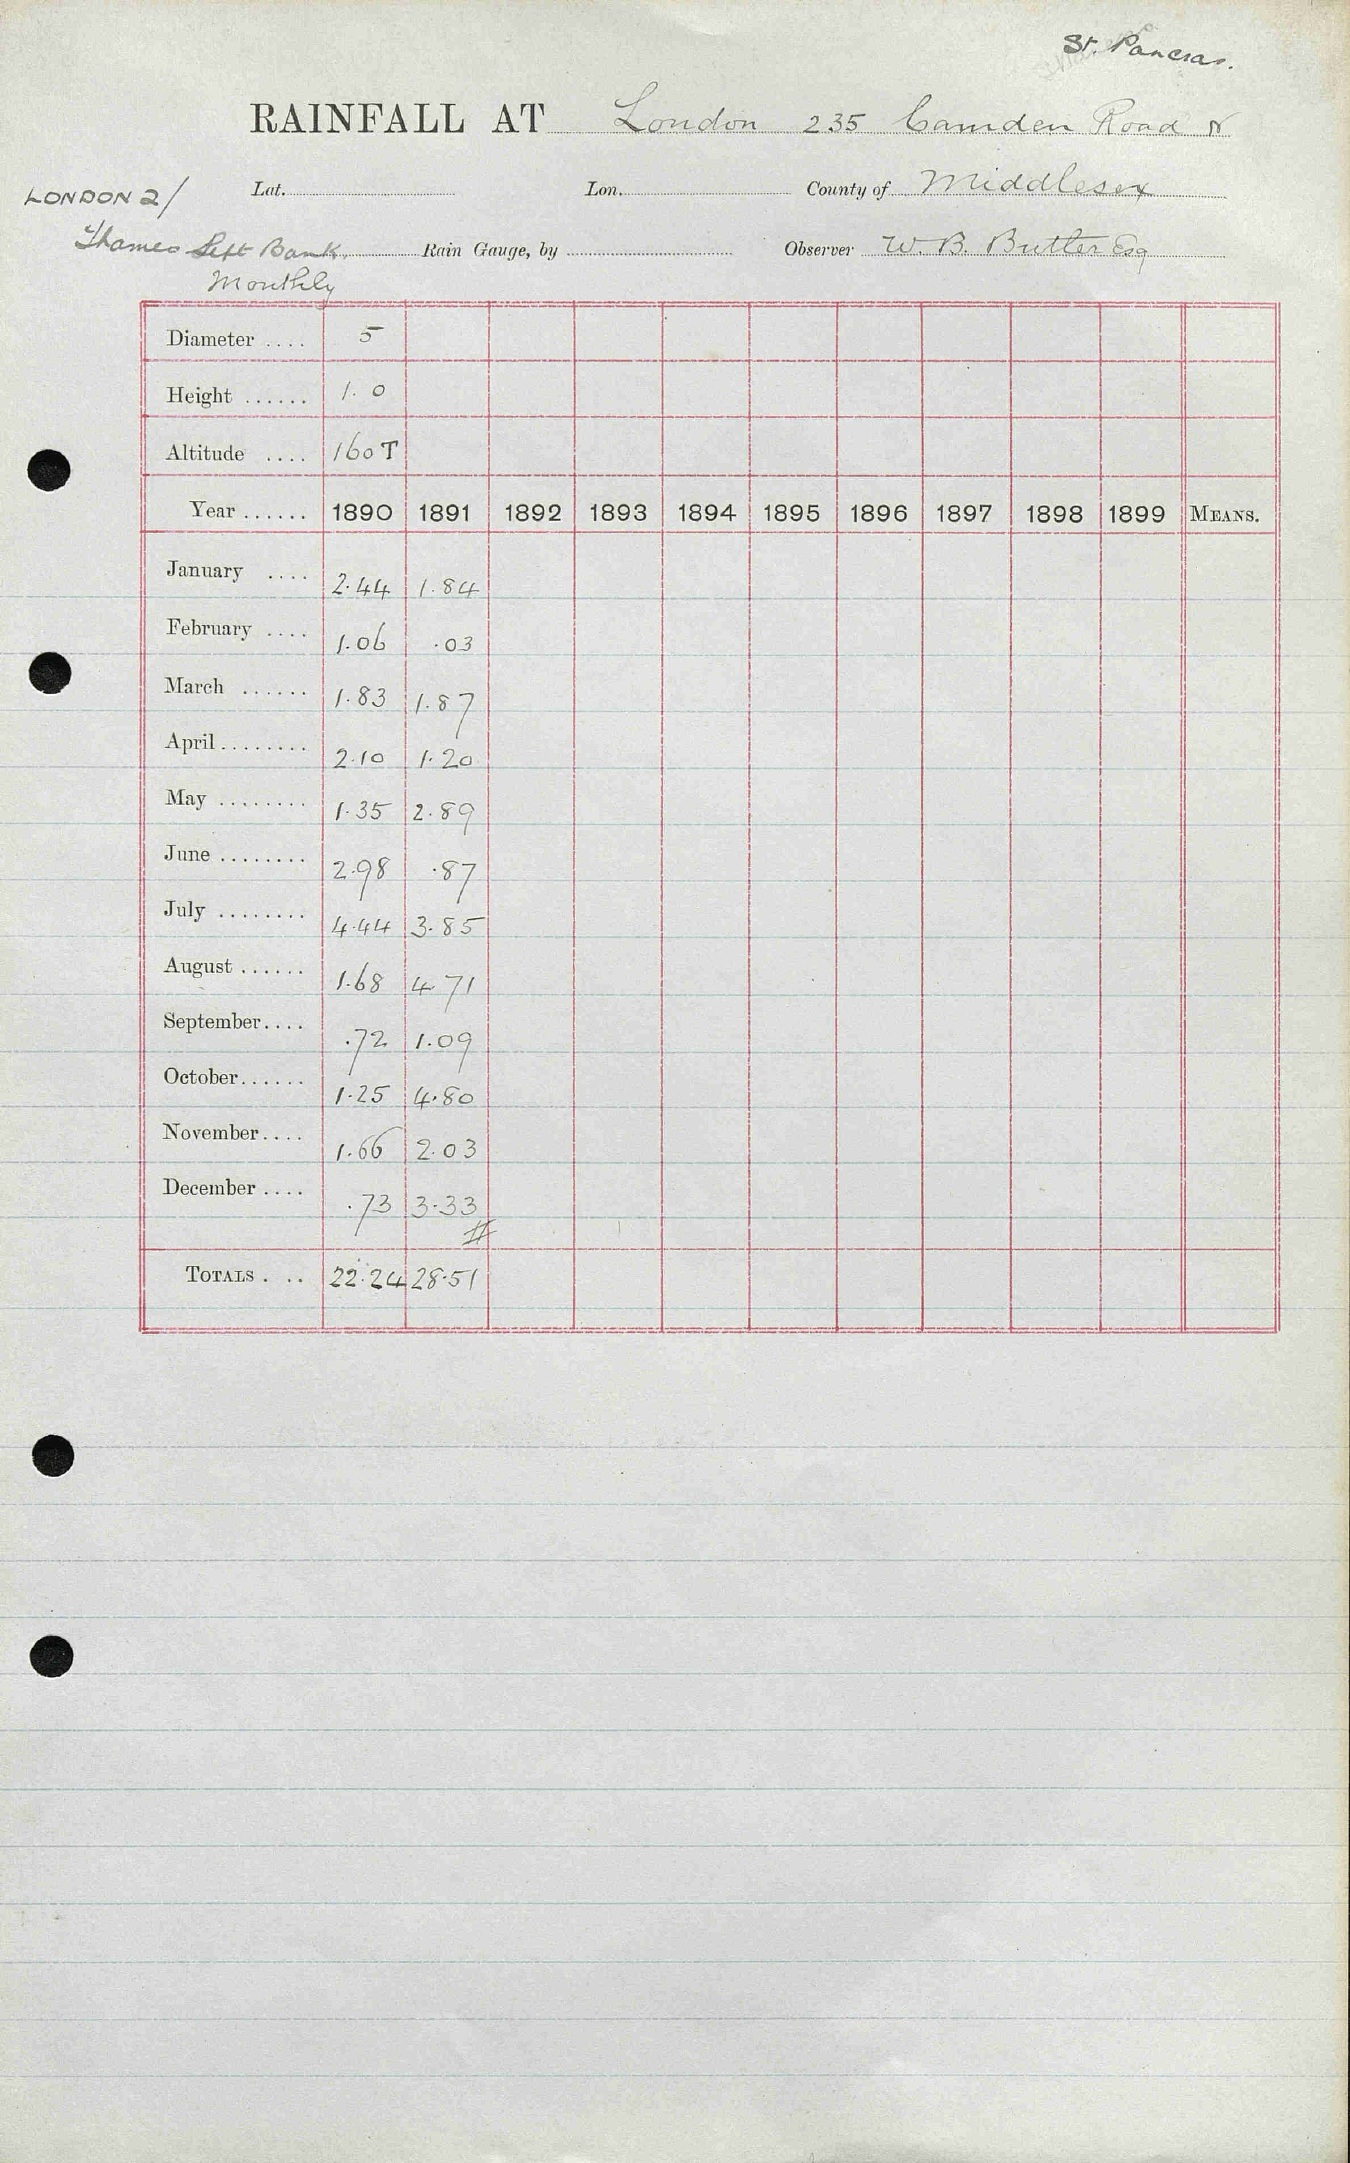 St. Pancras.
RAINFALL AT London 235 Camden Road N
LONDON 2/ Lat. Lon. County of Middlesex
Thames Left Bank. Rain Gauge, by Observer W. B. Butler Esq
Monthly
Diameter .... 5
Height ...... 1.0
Altitude .... 160 T
Year ...... 1890 1891 1892 1893 1894 1895 1896 1897 1898 1899 MEANS.
January .... 2.44 1.84
February .... 1.06 .03
March ...... 1.83 1.87
April........ 2.10 1.20
May ........ 1.35 2.89
June ........ 2.98 .87
July ........ 4.44 3.85
August ...... 1.68 4.71
September.... .72 1.09
October...... 1.25 4.80
November.... 1.66 2.03
December .... .73 3.33
#
TOTALS . .. 22.24 28.51